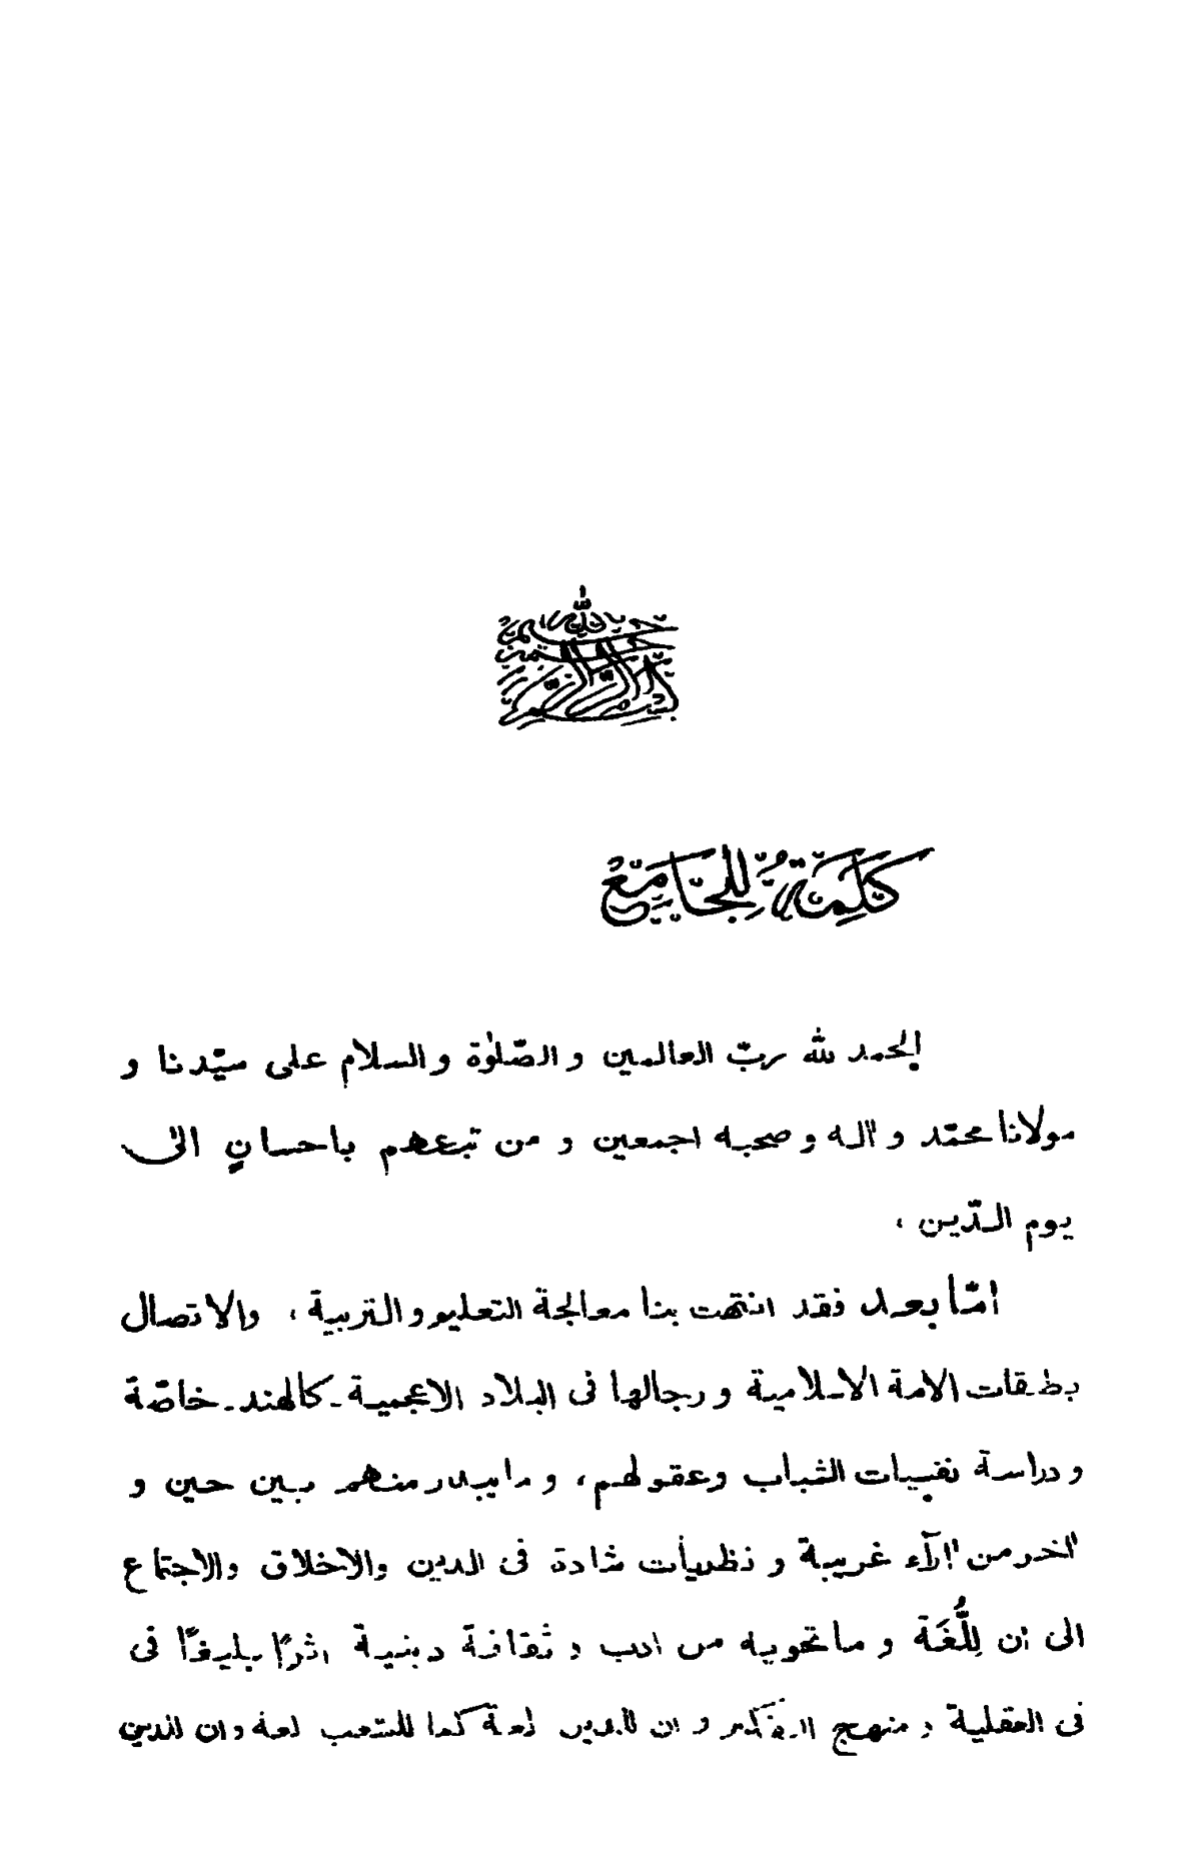 بسم الله الرحمن الرحيم
كَلِمَةٌ لِلْجَامِعِ
الحمد لله ربّ العالمين و الصّلوٰة و السلام على سيّدنا و
مولانا محمّد و اٰله و صحبه اجمعين و من تبعهم باحسانٍ الىٰ
يوم الدّين ،
امّا بعد فقد انتهت بنا معالجة التعليم و التربية ، والاتصال
بطبقات الامة الاسلامية و رجالها فى البلاد الاعجمية ـ كالهند ـ خاصّة
و دراسة نفسيات الشباب وعقولهم ، و ما يبدر منهم بين حين و
اٰخر من اٰرآء غريبة و نظريات شاذة فى الدين والاخلاق والاجتماع
الى ان لِلُّغَة و ما تحويه من ادب و ثقافة دينية اثرًا بليغًا فى
فى العقلية و منهج التفكير و ان للدين لغة كما للشعب لغة و ان الدين